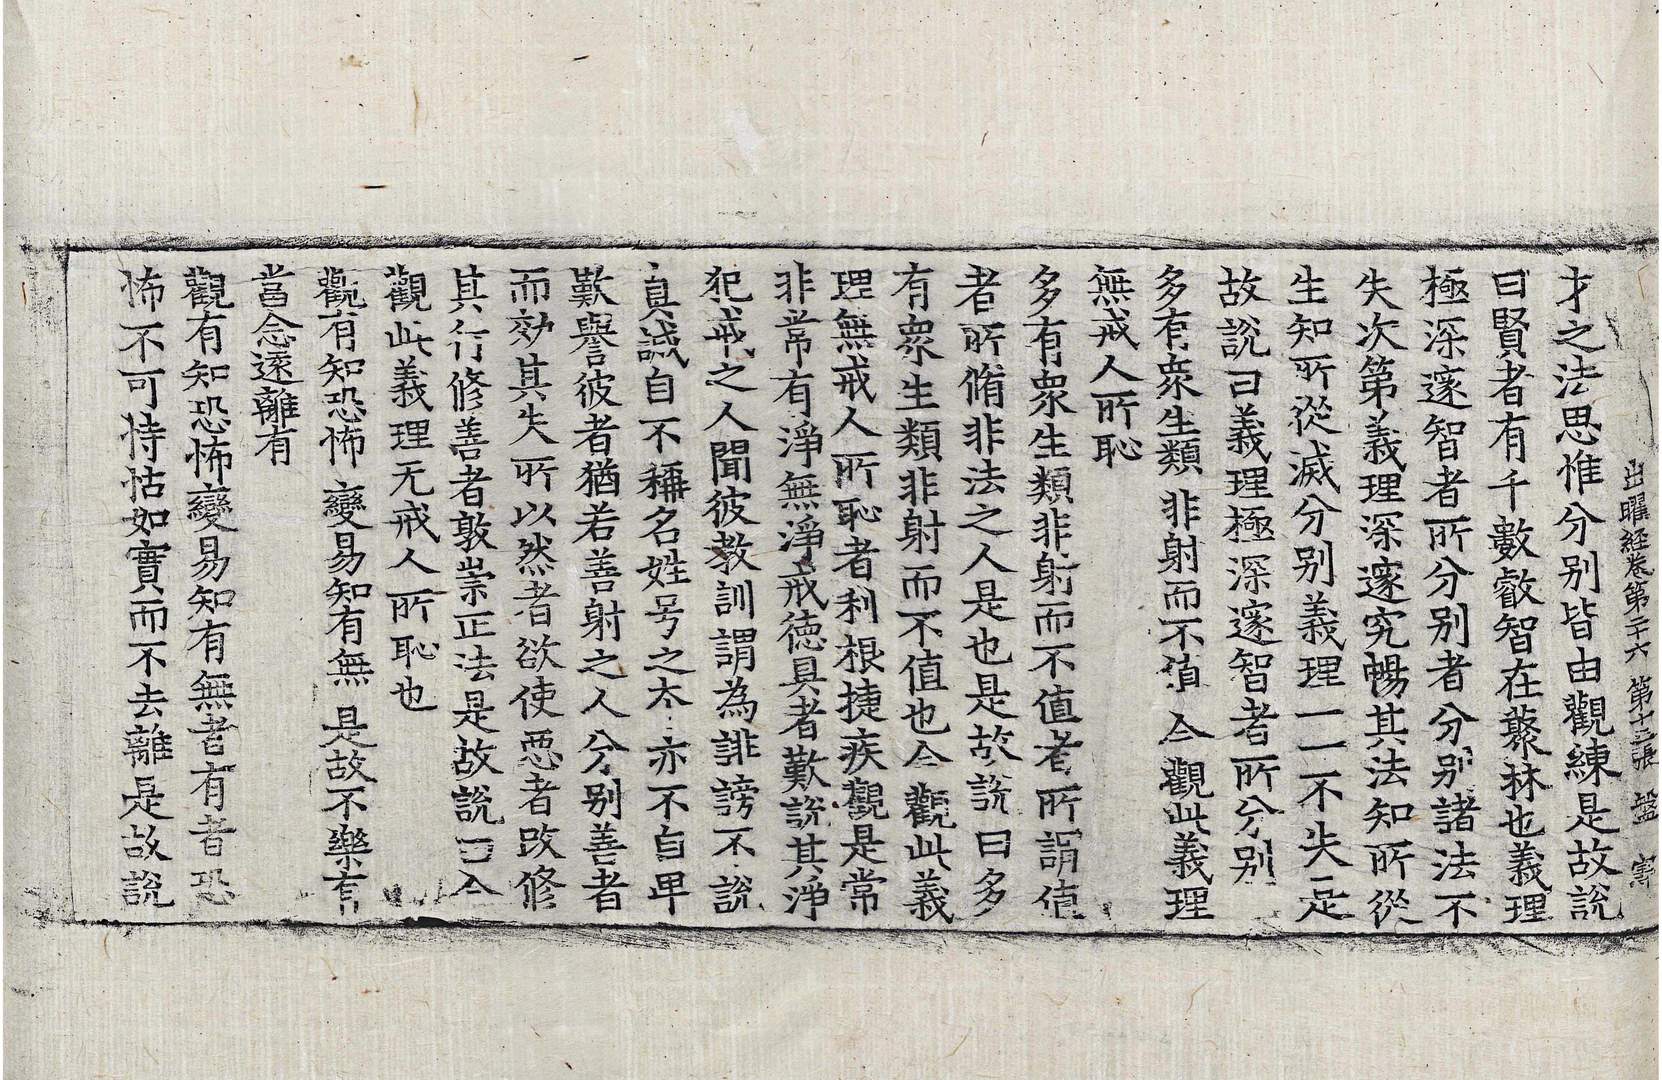 出曜経巻第二十六 第十三張 盤 寉
才之法思惟分别皆由觀練是故說
曰賢者有千數叡智在藂林也義理
極深邃智者所分别者分别諸法不
失次第義理深邃究暢其法知所從
生知所從滅分别義理一一不失是
故說曰義理極深邃智者所分别
多有衆生類 非射而不值 今觀此義理
無戒人所恥
多有衆生類非射而不值者所謂值
者所脩非法之人是也是故說曰多
有衆生類非射而不值也今觀此義
理無戒人所恥者利根捷疾觀是常
非常有淨無淨戒德具者歎說其淨
犯戒之人聞彼教訓謂為誹謗不說
真誠自不稱名姓号之本亦不自卑
歎譽彼者猶若善射之人分别善者
而効其失所以然者欲使惡者改修
其行修善者敦崇正法是故說曰今
觀此義理无戒人所恥也
觀有知恐怖 變易知有無 是故不樂有
當念遠離有
觀有知恐怖變易知有無者有者恐
怖不可恃怙如實而不去離是故說